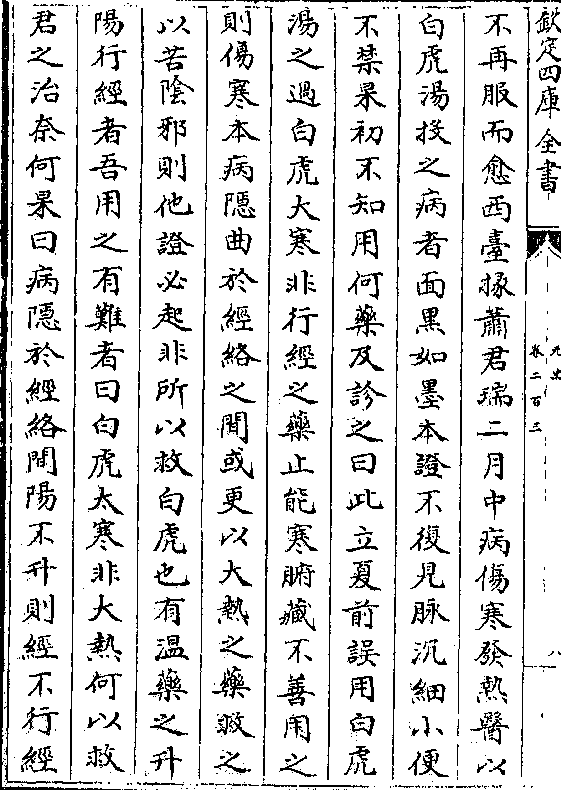 欽定四庫全書
元史
卷二百三
八
不再服而愈西臺掾蕭君瑞二月中病傷寒發熱醫以
白虎湯投之病者面黒如墨本證不復見脉沉細小便
不禁杲初不知用何藥及診之曰此立夏前誤用白虎
湯之過白虎大寒非行經之藥止能寒腑藏不善用之
則傷寒本病隱曲於經絡之間或更以大熱之藥救之
以苦陰邪則他證必起非所以救白虎也有温藥之升
陽行經者吾用之有難者曰白虎大寒非大熱何以救
君之治奈何杲曰病隱於經絡間陽不升則經不行經